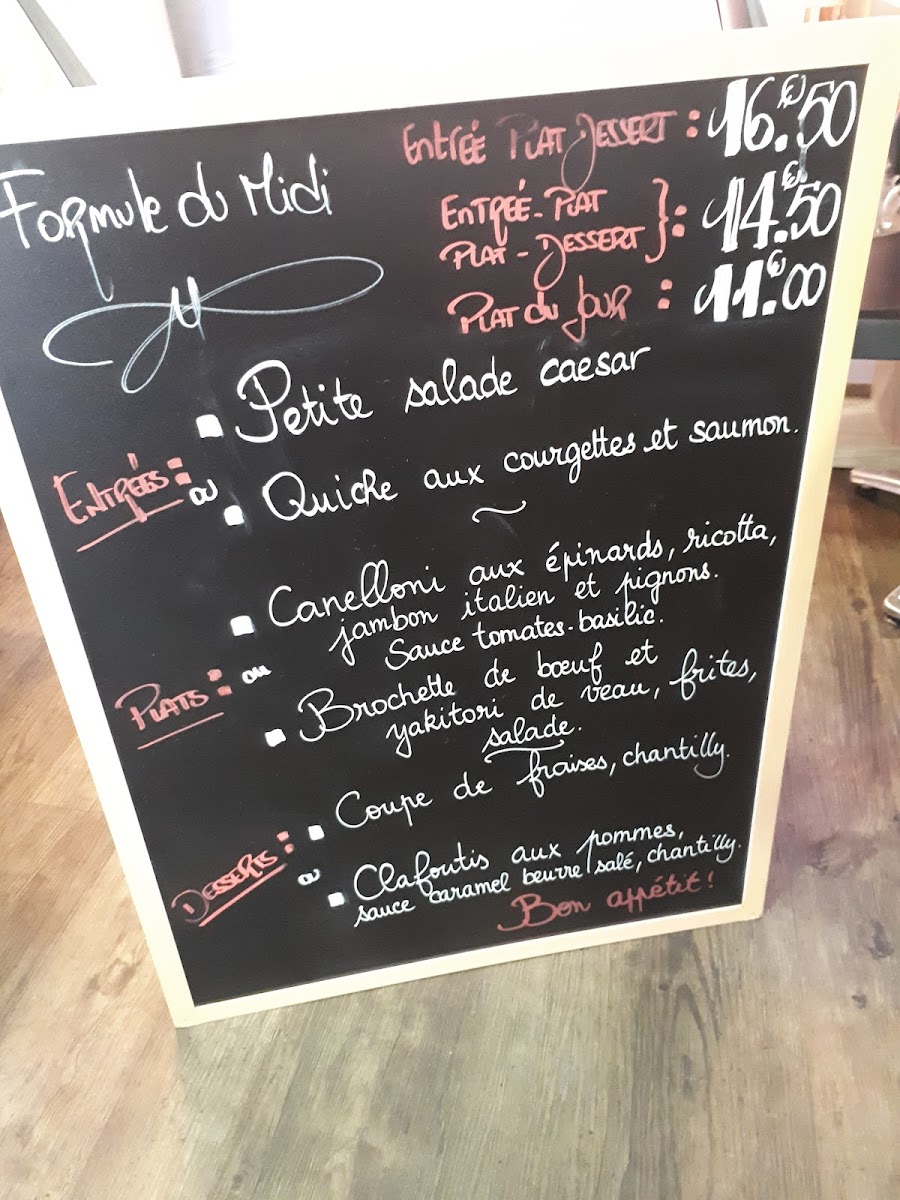 Formule du Midi
Entrée Plat Dessert : 16.€50
Entrée - Plat
Plat - Dessert } : 14.€50
Plat du Jour : 11.€00
Entrées :
Petite salade caesar
ou
Quiche aux courgettes et saumon.
~
Plats :
Canelloni aux épinards, ricotta,
jambon italien et pignons.
Sauce tomates-basilic.
ou
Brochette de bœuf et
yakitori de veau, frites,
salade.
Desserts :
Coupe de fraises, chantilly.
ou
Clafoutis aux pommes,
sauce caramel beurre salé, chantilly.
Bon appétit !